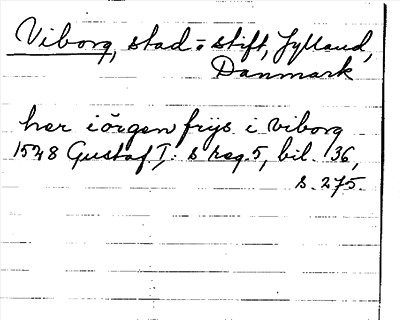 Viborg, stad = stift, Jylland,
Danmark
her iörgen frijs i viborg
1528 Gustaf I: s reg. 5, bil. 36,
s. 275.